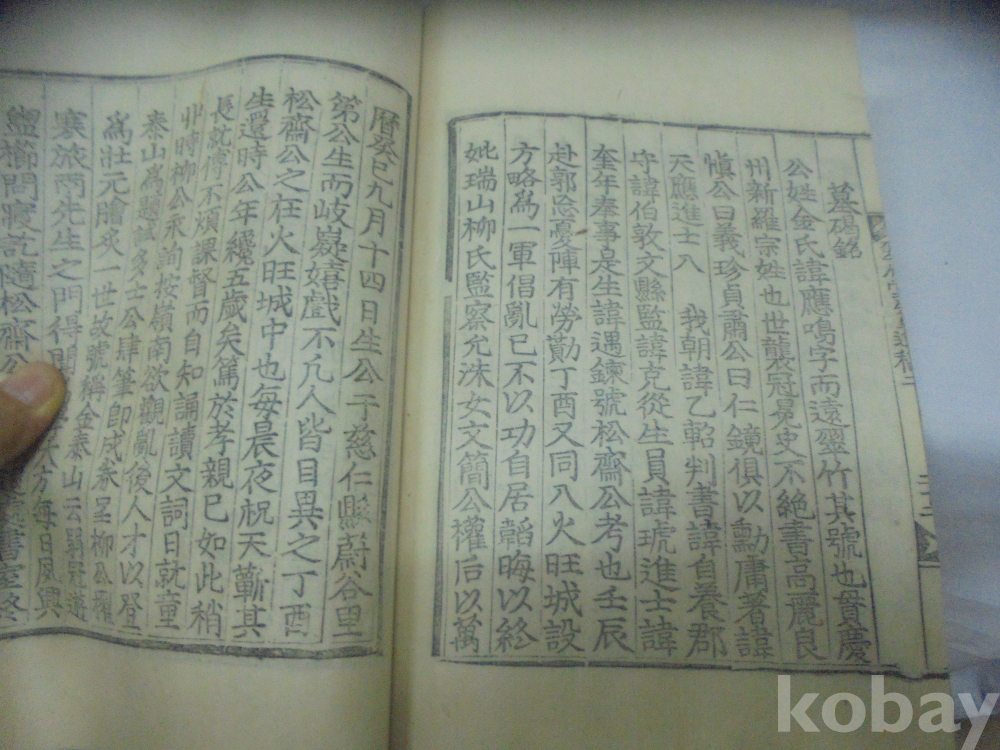 墓碣銘
公姓金氏諱應鳴字而遠翠竹其號也貫慶
州新羅宗姓也世襲冠冕史不絶書高麗良
愼公曰義珍貞肅公曰仁鏡俱以勳庸著諱
天應進士入 我朝諱乙軺判書諱自養郡
守諱伯敦文縣監諱克從生員諱琥進士諱
奎年奉事是生諱遇鍊號松齋公考也壬辰
赴郭忘憂陣有勞勩丁酉又同入火旺城設
方略爲一軍倡亂已不以功自居韜晦以終
妣瑞山柳氏監察允洙女文簡公權后以萬
曆癸巳九月十四日生公于慈仁縣蔚谷里
第公生而岐嶷嬉戲不凡人皆目異之丁酉
松齋公之在火旺城中也每晨夜祝天蘄其
生還時公年纔五歲矣篤於孝親已如此稍
長就傅不煩課督而自知誦讀文詞日就童
丱時柳公永詢按嶺南欲觀亂後人才以登
泰山爲題試多士公肆筆卽成券呈柳公擢
爲壯元膾炙一世故號稱金泰山云
寒旅兩先生之門得
方每日夙興
盥櫛問寢訖隨松齋公
kobay